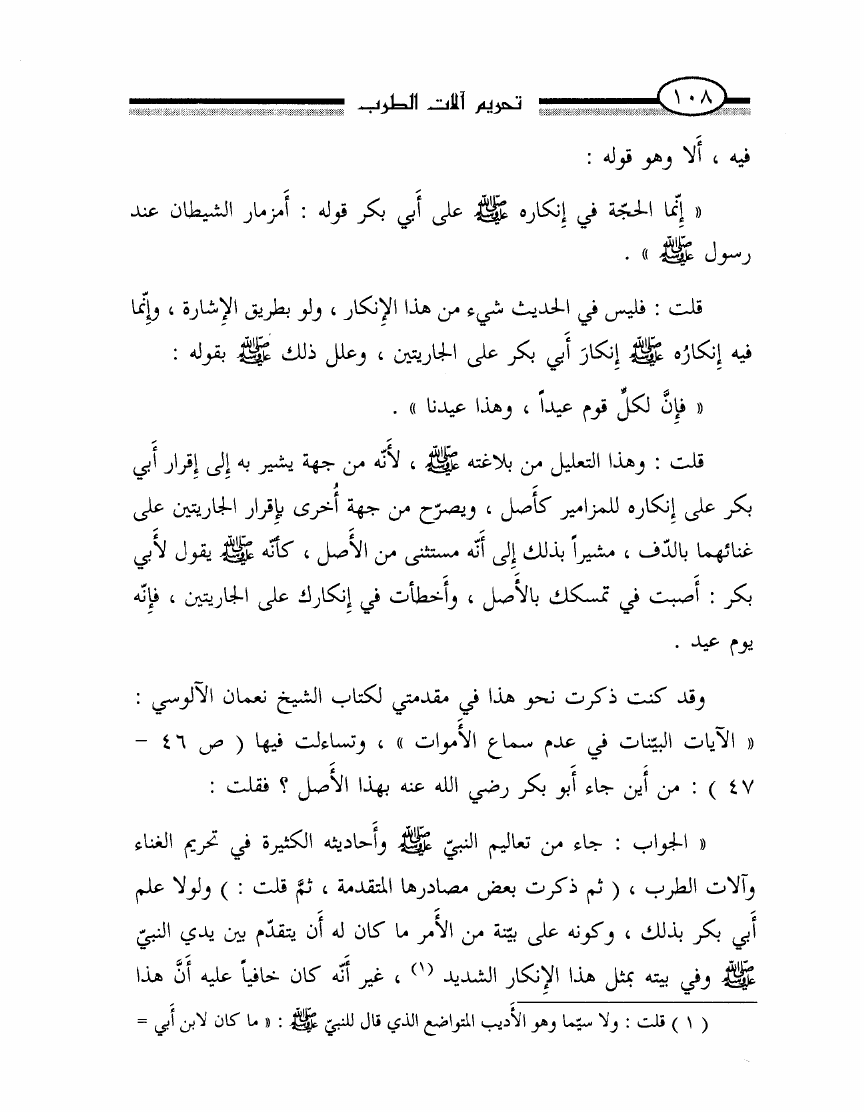 ١٠٨ تحريم آلات الطرب
فيه ، أَلا وهو قوله :
« إِنّما الحجّة في إِنكاره ﷺ على أَبي بكر قوله : أَمزمار الشيطان عند
رسول ﷺ » .
قلت : فليس في الحديث شيء من هذا الإِنكار ، ولو بطريق الإِشارة ، وإِنّما
فيه إِنكارُه ﷺ إِنكارَ أَبي بكر على الجاريتين ، وعلل ذلك ﷺ بقوله :
« فإِنَّ لكلِّ قوم عيداً ، وهذا عيدنا » .
قلت : وهذا التعليل من بلاغته ﷺ ، لأَنّه من جهة يشير به إِلى إِقرار أَبي
بكر على إِنكاره للمزامير كأَصل ، ويصرّح من جهة أُخرى بإِقرار الجاريتين على
غنائهما بالدّف ، مشيراً بذلك إِلى أَنّه مستثنى من الأَصل ، كأَنّه ﷺ يقول لأَبي
بكر : أَصبت في تمسكك بالأَصل ، وأَخطأت في إِنكارك على الجاريتين ، فإِنّه
يوم عيد .
وقد كنت ذكرت نحو هذا في مقدمتي لكتاب الشيخ نعمان الآلوسي :
« الآيات البيّنات في عدم سماع الأَموات » ، وتساءلت فيها ( ص ٤٦ –
٤٧ ) : من أَين جاء أَبو بكر رضي الله عنه بهذا الأَصل ؟ فقلت :
« الجواب : جاء من تعاليم النبيّ ﷺ وأَحاديثه الكثيرة في تحريم الغناء
وآلات الطرب ، ( ثم ذكرت بعض مصادرها المتقدمة ، ثمَّ قلت : ) ولولا علم
أَبي بكر بذلك ، وكونه على بيّنة من الأَمر ما كان له أَن يتقدّم بين يدي النبيّ
ﷺ وفي بيته بمثل هذا الإِنكار الشديد (١) ، غير أَنّه كان خافياً عليه أَنَّ هذا
( ١ ) قلت : ولا سيّما وهو الأَديب المتواضع الذي قال للنبيّ ﷺ : « ما كان لابن أَبي =